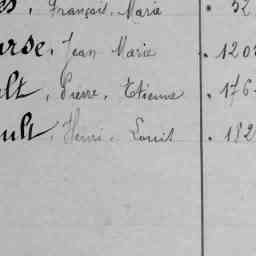 es, François, Marie . 52
urse, Jean Marie . 120
ult, Pierre, Etienne . 176
ult, Henri, Louis . 182